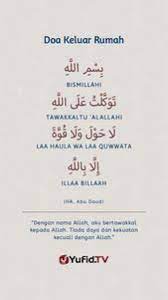 Doa Keluar Rumah
بِسْمِ اللَّهِ
BISMILLAHI
تَوَكَّلْتُ عَلَى اللَّهِ
TAWAKKALTU 'ALALLAHI
لَا حَوْلَ وَلَا قُوَّةَ
LAA HAULA WA LAA QUWWATA
إِلَّا بِاللَّهِ
ILLAA BILLAAH
(HR. Abu Daud)
"Dengan nama Allah, aku bertawakkal
kepada Allah. Tiada daya dan kekuatan
kecuali dengan Allah."
YUFID.TV